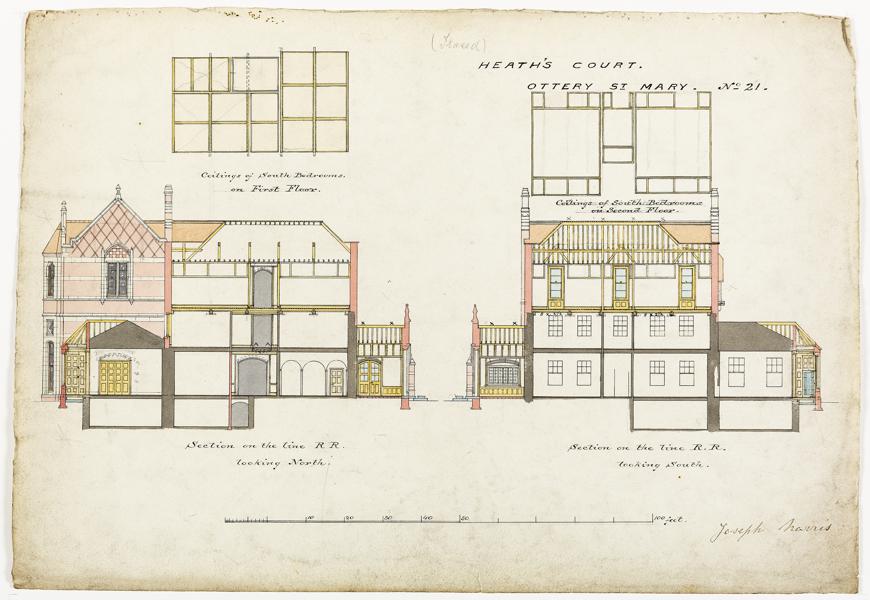 (Traced)
HEATH'S COURT.
OTTERY ST MARY. No 21.
Ceilings of South Bedrooms.
on First Floor.
Ceilings of South Bedrooms
on Second Floor.
Section on the line R R.
looking North.
Section on the line R. R.
looking South.
10 20 30 40 50 100 feet.
Joseph Harris